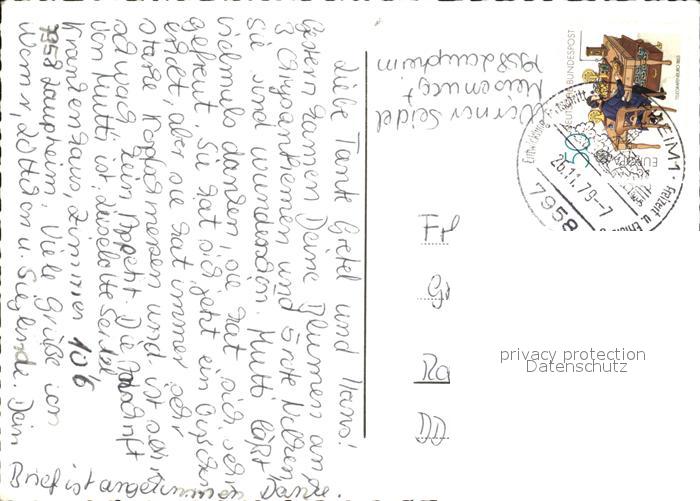 Liebe Tante Gretel und Hans!
Gestern kamen Deine Blumen an
3 Chrysanthemen und Erste Nelken
sie sind wunderschön. Mutti läßt
vielmals danken, sie hat sich sehr
gefreut sie hat sich jetzt ein bisschen
erholt aber sie hat immer sehr
starke Kopfschmerzen und ist sehr
schwach. Kein Appetit. Die Anschrift
von Mutti ist, Liselotte Seidel
Krankenhaus, Zimmer 106
7958 Laupheim. Viele Grüße von
Werner, Lottchen u. Sieglinde. Dein
Brief ist angekommen Danke.
Werner Seidel
7958 Laupheim
DEUTSCHE BUNDESPOST
50
EUROPA
26.11.79-7
7958
HEIM 1
Freizeit u.
Fr
Gr
privacy protection
Datenschutz